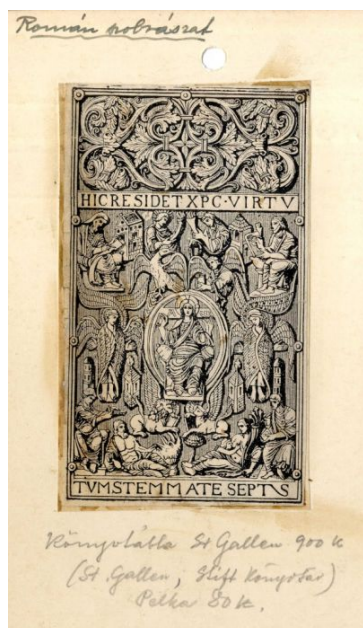 Román szobrászat
HIC RESIDET XPC·VIRTV
TVM STEMMATE SEPTVS
Könyvtábla St Gallen 900 k
(St. Gallen, Stift Könyvtár)
Pelka 80 k.